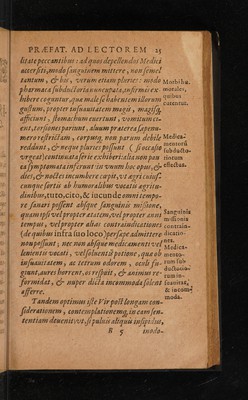 PRÆFAT. AD LECTOREM 25
litate peccantibus: ad quos depellendos Medici
accersiti, modo sanguinem mittere, non semel
tantum, & hoc, verum etiam pluries: modo
pharmaca subductoria nuncupata, infirmis ex
hibere coguntur, quæ male se habentem illorum
gustum, propter insuauitatem magis, magisq́
afficiunt, stomachum euertunt, vomitum cient,
torsiones pariunt, aluum præterea sæpenu-
mero restrictam, corpus, non parum debile
reddunt, & neque pluries possunt (si occasio
vrgeat) continuata serie exhiberi: alia non pau
ca symptomata inferunt in vnum hoc opus, &
dies, & noctes incumbere
cunque fortis ab humoralibus vocatis ægritu-
dinibus, tuto, cito, & iucunde omni tempo-
re sanari possent absque sanguinis missione,
quam ipsi vel propter ætatem, vel propter anni
tempus, vel propter alias contraindicationes
(de quibus infra suo loco) persæpe admittere
non possunt; nec non absque medicamenti vio
lentis vocati, vel soluentis potione, quæ ob
insuauitatem, ac tetrum odorem, oculi fu-
giunt, aures horrent, os respuit, & animus re-
formidat, & nuper dicta incommoda solent
afferre.
Tandem optimus iste Vir post longam con-
siderationem, contemplationemq́, in eam sen-
tentiam deuenit vt, si puluis aliquis insipidus,
R 5 modo-
Morbificæ
morales,
quibus
curentur.
Medica-
mentorū
subducto-
rientium
effectus.
Sanguinis
missionis
contrain-
dicatio-
nes.
Medica-
mento-
rum sub-
ductorio-
rum in-
suauitas,
& incom-
moda.